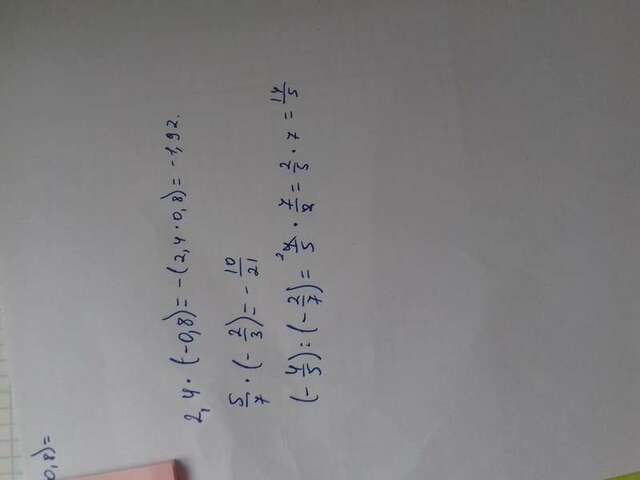 0,8)=
2,4 · (-0,8) = -(2,4 · 0,8) = -1,92.
5/7 · (- 2/3) = - 10/21
(- 4/5) : (- 2/7) = ²4/5 · 7/2 = 2/5 · 7 = 14/5